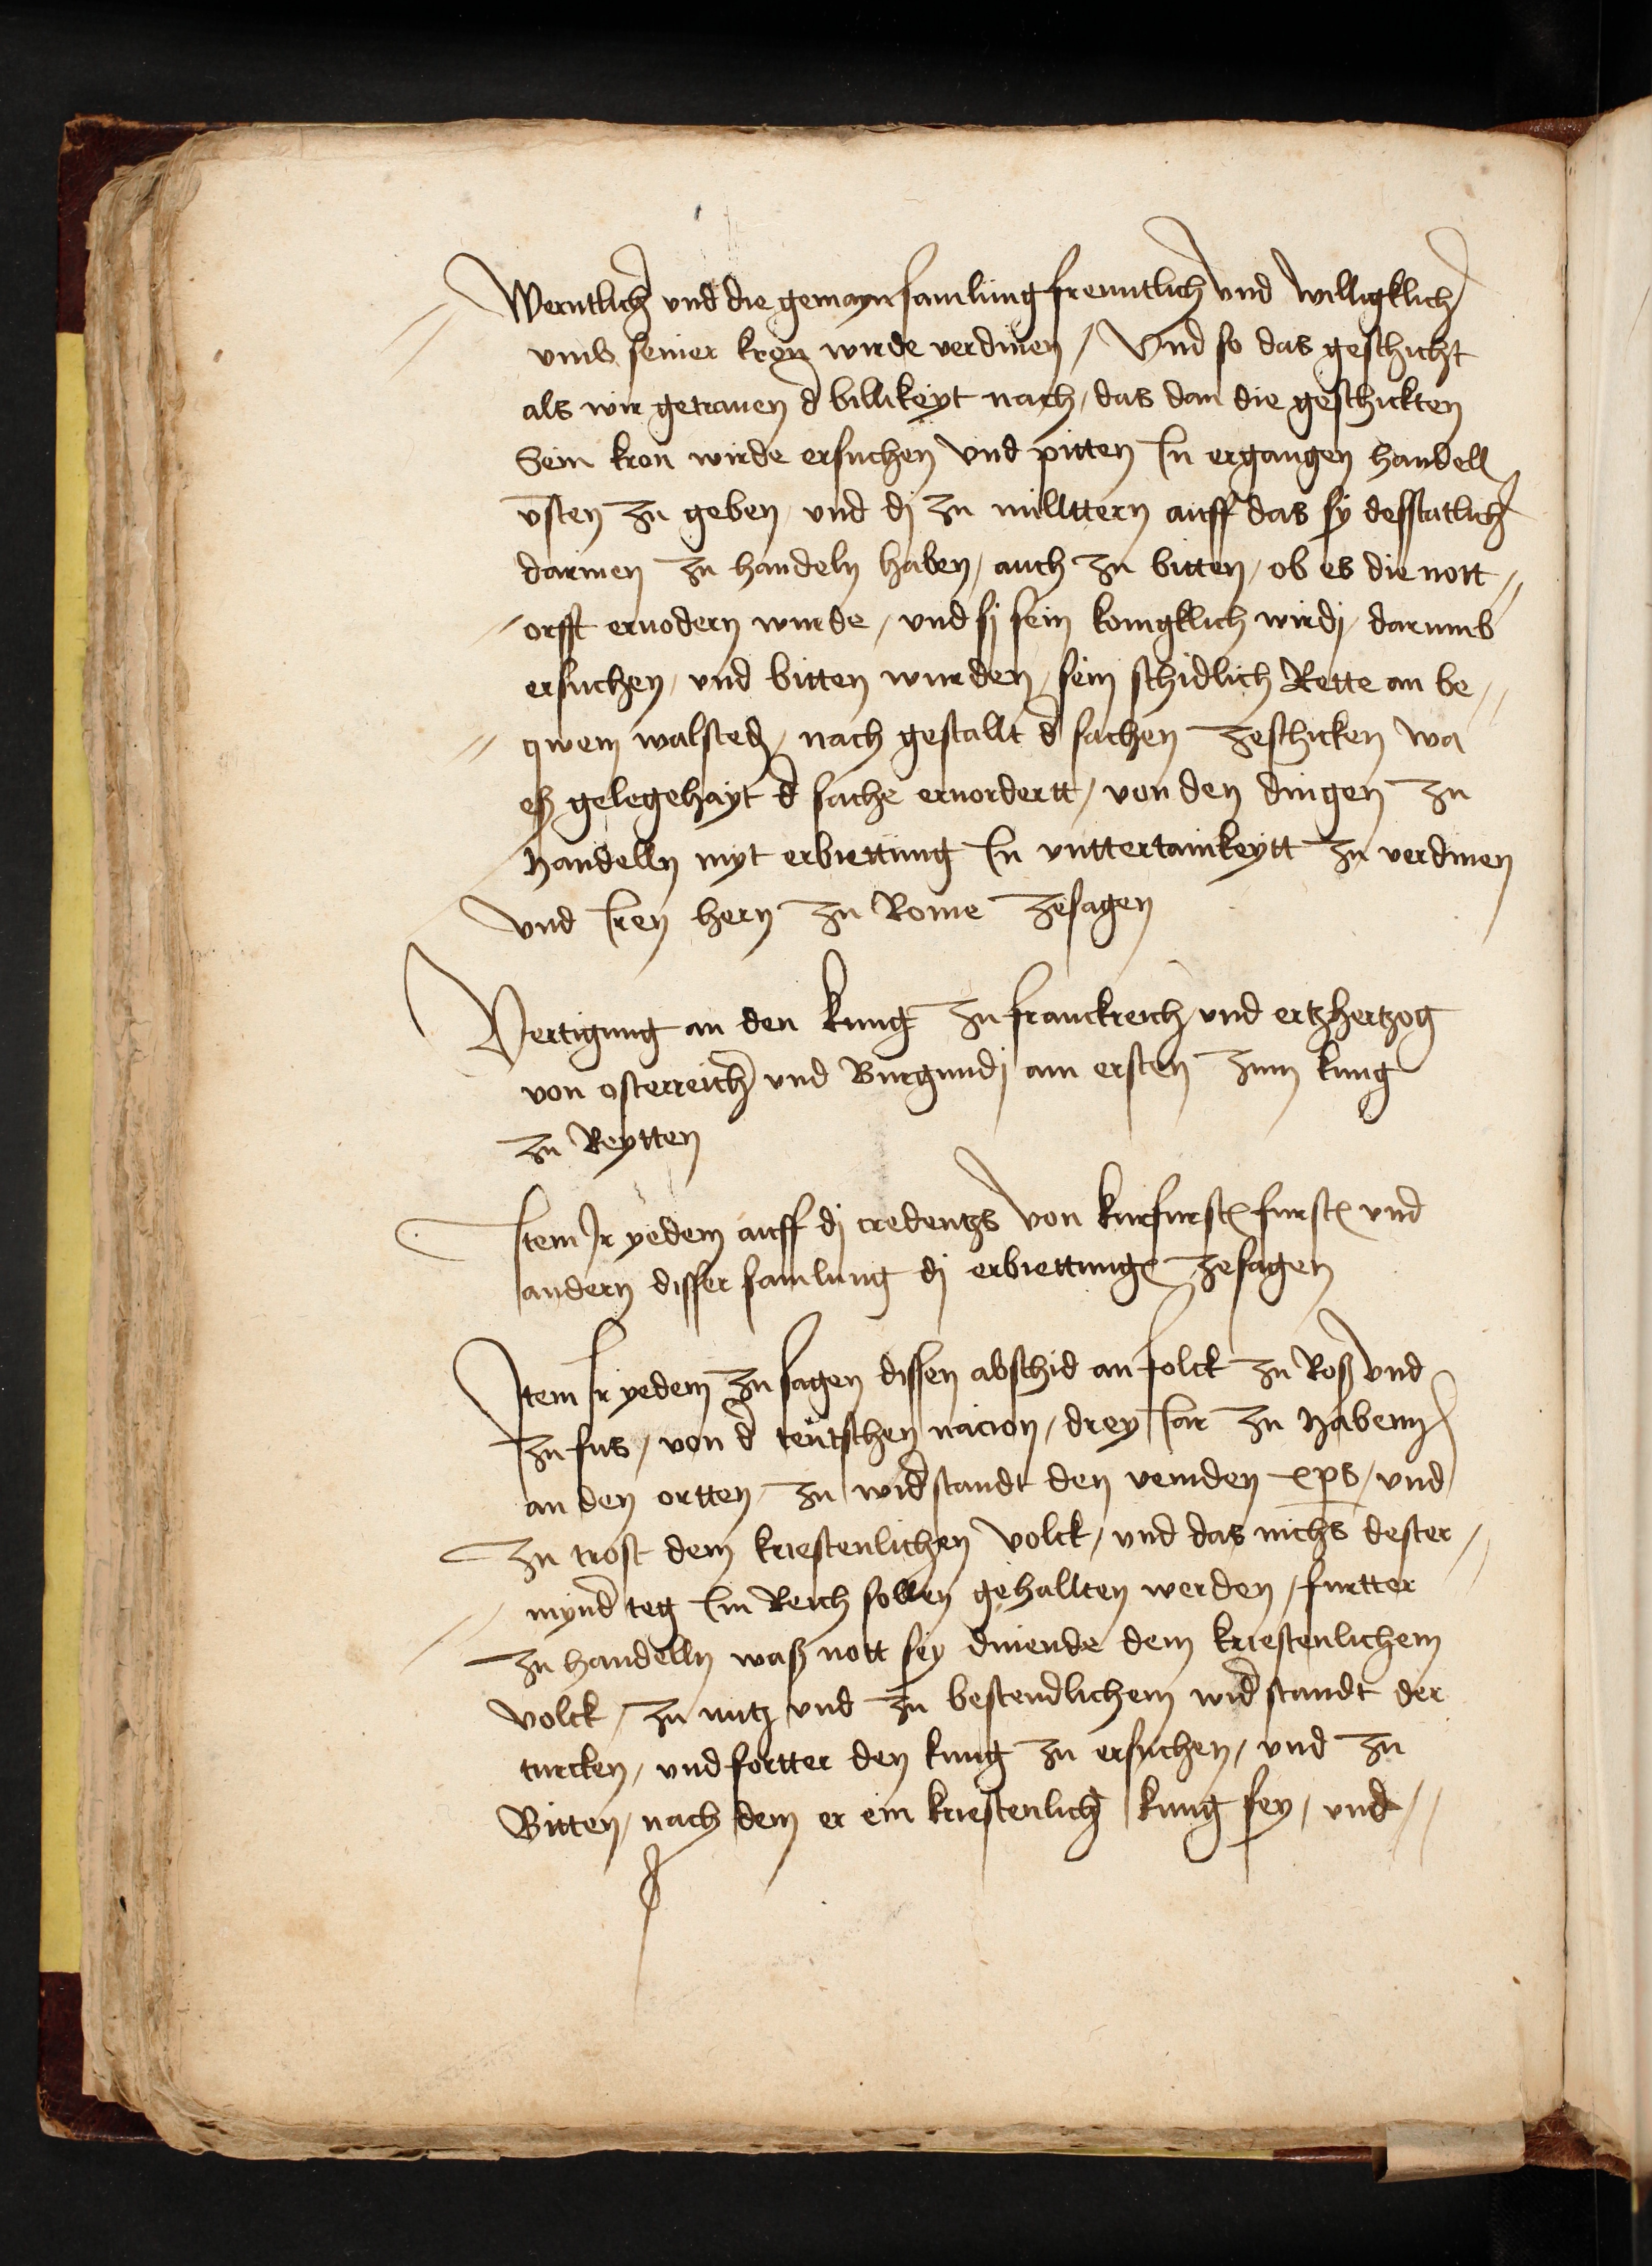 Werntlich und die gemayn samlung freuntlich und willigklich
umb seiner kron wirde verdinen / Und so das geschicht
als wir getrauen d billikeyt nach / das dan die geschickten
Sein kron wirde ersuchen und pitten In ergangen handell
vsten zu geben und dj zu millttern auff das sy desstatlich
darinen zu handeln haben / auch zu bitten / ob es die nott //
orfft ervodern wurde / und sj sein konigklich wirdj / darumb
ersuchen / und bitten wurden / sein schidlich Rette an be //
// qwem walsted / nach gestallt d sachen zeschicken wa
eß gelegehayt d sache ervordertt / von den dingen zu
handelln myt erbiettung In unttertanikeytt zu verdinen
und Iren hern zu Rome zesagen
Vertigung an den kung zu franckreich und ertzhertzog
von osterreich und Burgundj am ersten zum kung
zu Reytten
Item Ir yedem auff dj credentzs von kurfurst furst und
andern disser samlung dj erbiettung zesagen
Item Ir yedem zu sagen dissen abschid an folck zu Roß und
zu fus / von d teutschen nacion / drey Iar zu haben
an den ortten zu widstandt den veinden xps / und
zu trost dem kriestenlichen volck / und das nichs dester //
mynd teg Im Reich sollen gehallten werden / furtter
zu handelln waß nott sey dinende dem kriestenlichem
volck / zu nutz und zu bestendlichem widstandt der
turcken / und fortter den kung zu ersuchen / und zu
Bitten / nach dem er ein kriestenlich kung sey / und //